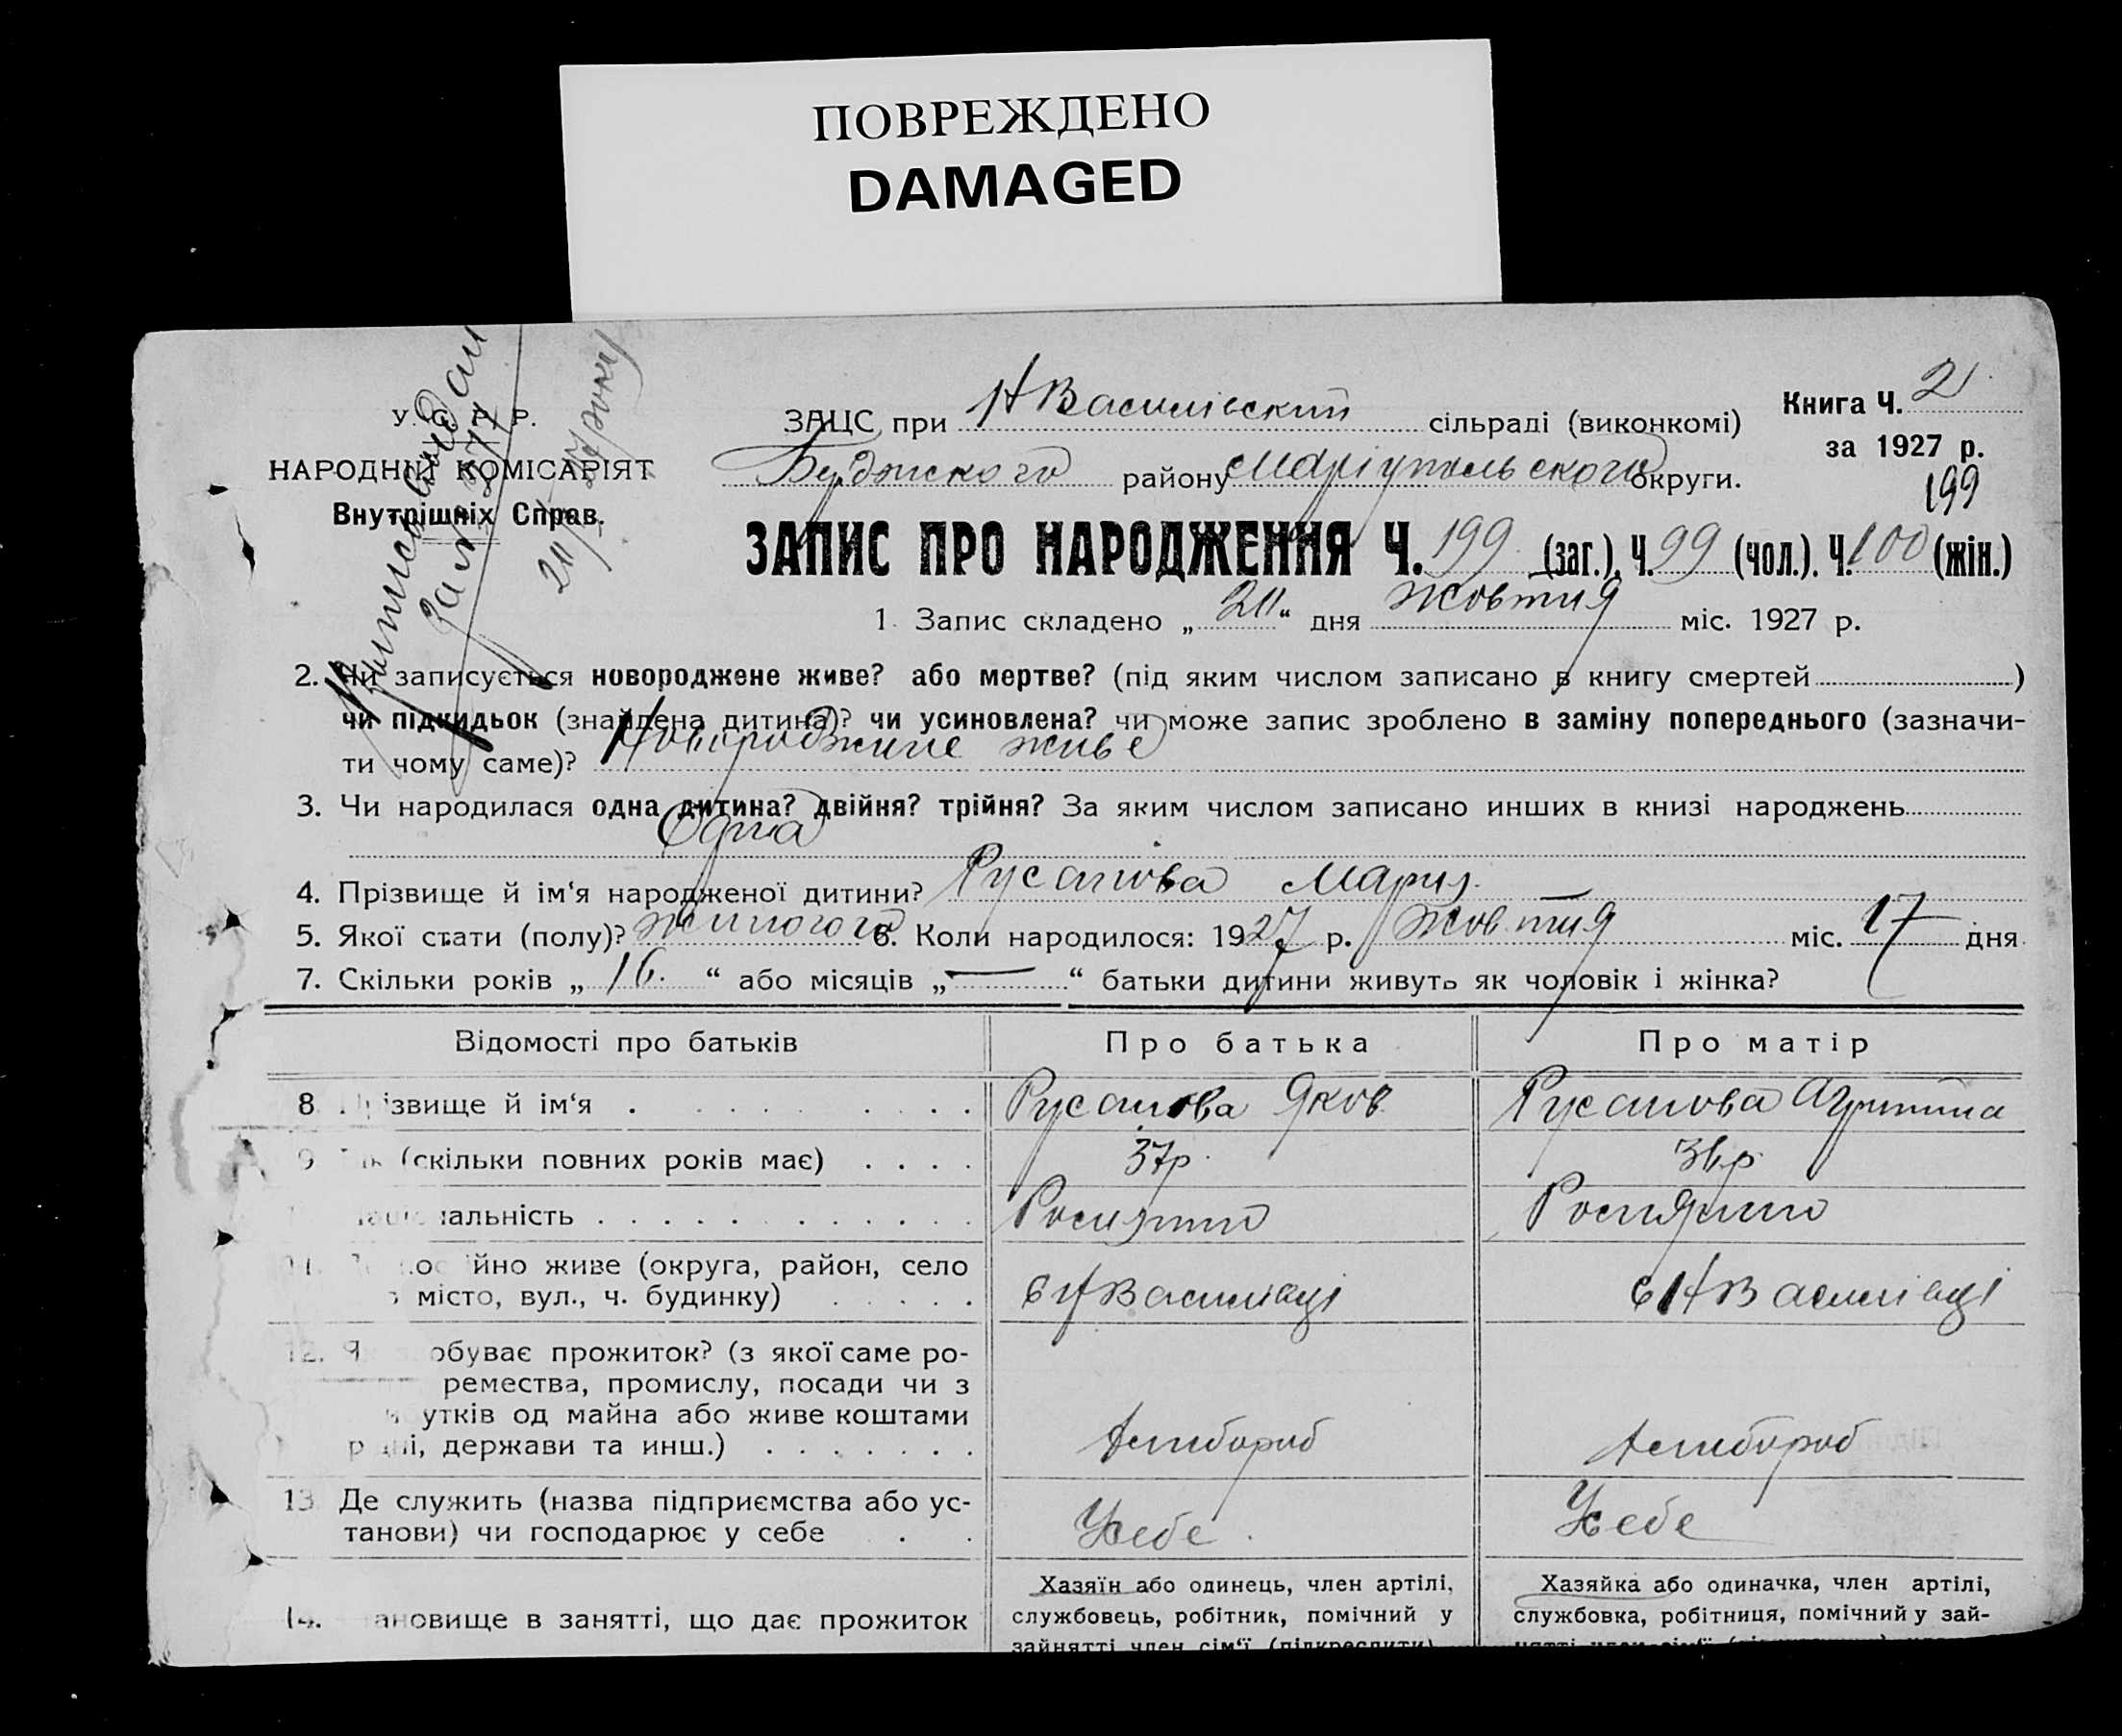 ПОВРЕЖДЕНО
DAMAGED
У. С. Р. Р.
НАРОДНІЙ КОМІСАРІЯТ
Внутрішніх Справ.
Виписа видан
за № 377
21/X 27 року
ЗАЦС при НВасилівский сільраді (виконкомі)
района Маріупольского округи.
Книга Ч. 2
за 1927 р.
199
ЗАПИС ПРО НАРОДЖЕННЯ Ч. 199 (заг.), Ч. 99 (чол.). Ч. 100 (жін.)
1. Запис складено „ “ дня жовтня міс. 1927 р.
2. Чи записується новороджене живе? або мертве? (під яким числом записано в книгу смертей )
чи підкидьок (знайдена дитина)? чи усиновлена? чи може запис зроблено в заміну попереднього (зазначи-
ти чому саме)? Новороджине живе
3. Чи народилася одна дитина? двійня? трійня? За яким числом записано инших в книзі народжень
Одна
4. Прізвище й ім‘я народженої дитини? Русанова Мария
5. Якої стати (полу)? жиночого 6. Коли народилося: 1927 р. Жовтня міс. 17 дня
7. Скільки років „ 16. “ або місяців „ — “ батьки дитини живуть як чоловік і жінка?
Відомості про батьків Про батька Про матір
8. Прізвище й ім‘я Русанова Яков Русанова
9 (скільки повних років має) 37р. 36р.
нальність Росиянин Росиянин
11. йно живе (округа, район, село
місто, вул., ч. будинку) с НВасиливці с НВасиливці
12. обуває прожиток? (з якої саме ро-
ремества, промислу, посади чи з
утків од майна або живе коштами
рідні, держави та инш.) Хлибороб Хлибороб
13 Де служить (назва підприємства або ус-
танови) чи господарює у себе Усебе Усебе
14. ановище в занятті, що дає прожиток
Хазяїн або одинець, член артілі,
службовець, робітник, помічний у
зайнятті член сім‘ї (підкреслити)
Хазяйка або одиначка, член артілі,
службовка, робітниця, помічний у зай-